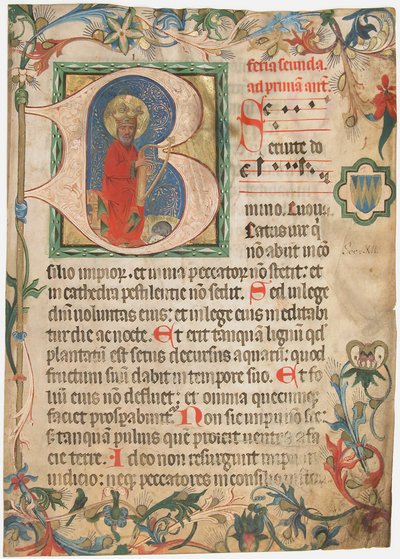 feria secunda
ad primā ant̄.
Seruite do
mino. Euouae
B
Eatus uir q̇
nō abiit in cō
silio impior̄. et in uia peccator̄ nō stetit: et
in cathedra pestilentie nō sedit. Sed in lege
dn̄i uoluntas eius: et in lege eius meditabi
tur die ac nocte. Et erit tanquā lignū qd̄
plantatū est secus decursus aquarū: quod
fructum suū dabit in tempore suo. Et fo
liū eius nō defluet: et omnia quecunqȝ
faciet prosperabunt̄. Non sic impii nō sic:
s; tanquā puluis quē proicit uentus a fa
cie terre. Ideo non resurgunt impii in
iudicio: neqȝ peccatores in consilio